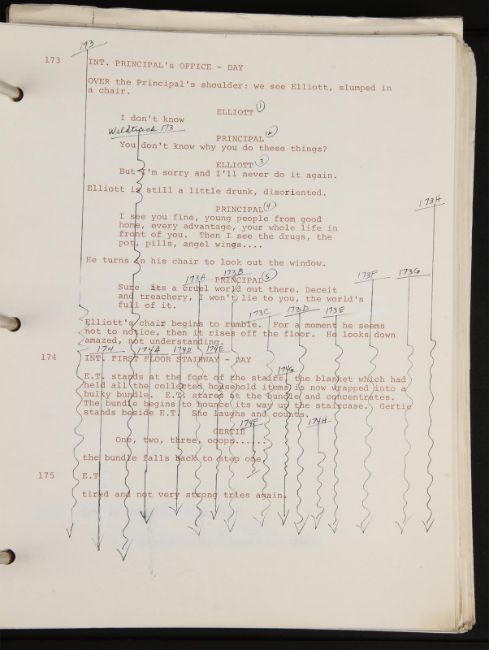 173
173 INT. PRINCIPAL's OFFICE - DAY
OVER the Principal's shoulder: we see Elliott, slumped in
a chair.
ELLIOTT 1
I don't know
Wildtrack 173
PRINCIPAL 2
You don't know why you do these things?
ELLIOTT 3
But I'm sorry and I'll never do it again.
Elliott is still a little drunk, disoriented.
PRINCIPAL 4
173H
I see you fine, young people from good
home, every advantage, your whole life in
front of you. Then I see the drugs, the
pot, pills, angel wings....
He turns in his chair to look out the window.
173A 173B PRINCIPAL 5 173F 173G
Sure its a cruel world out there. Deceit
and treachery, I won't lie to you, the world's
full of it.
173C 173D 173E
Elliott's chair begins to rumble. For a moment he seems
not to notice, then it rises off the floor. He looks down
amazed, not understanding.
174 174A 174D 174E
174 INT. FIRST FLOOR STAIRWAY - DAY
174G
E.T. stands at the foot of the stairs, the blanket which had
held all the collected household items is now wrapped into a
bulky bundle. E.T. stares at the bundle and concentrates.
The bundle begins to bounce its way up the staircase. Gertie
stands beside E.T. She laughs and counts.
174F 174H
GERTIE
One, two, three, ooops.......
the bundle falls back to step one.
175 E.T
tired and not very strong tries again.